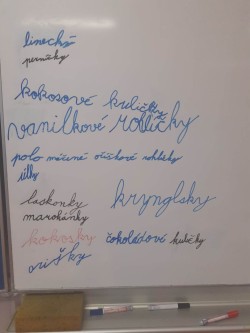 linecká
perníčky
kokosové kuličky
vanilkové rohlíčky
polo máčené oříškové rohlíčky
úlky
laskonky krynglsky
marokánky
kokosky čokoládové kuličky